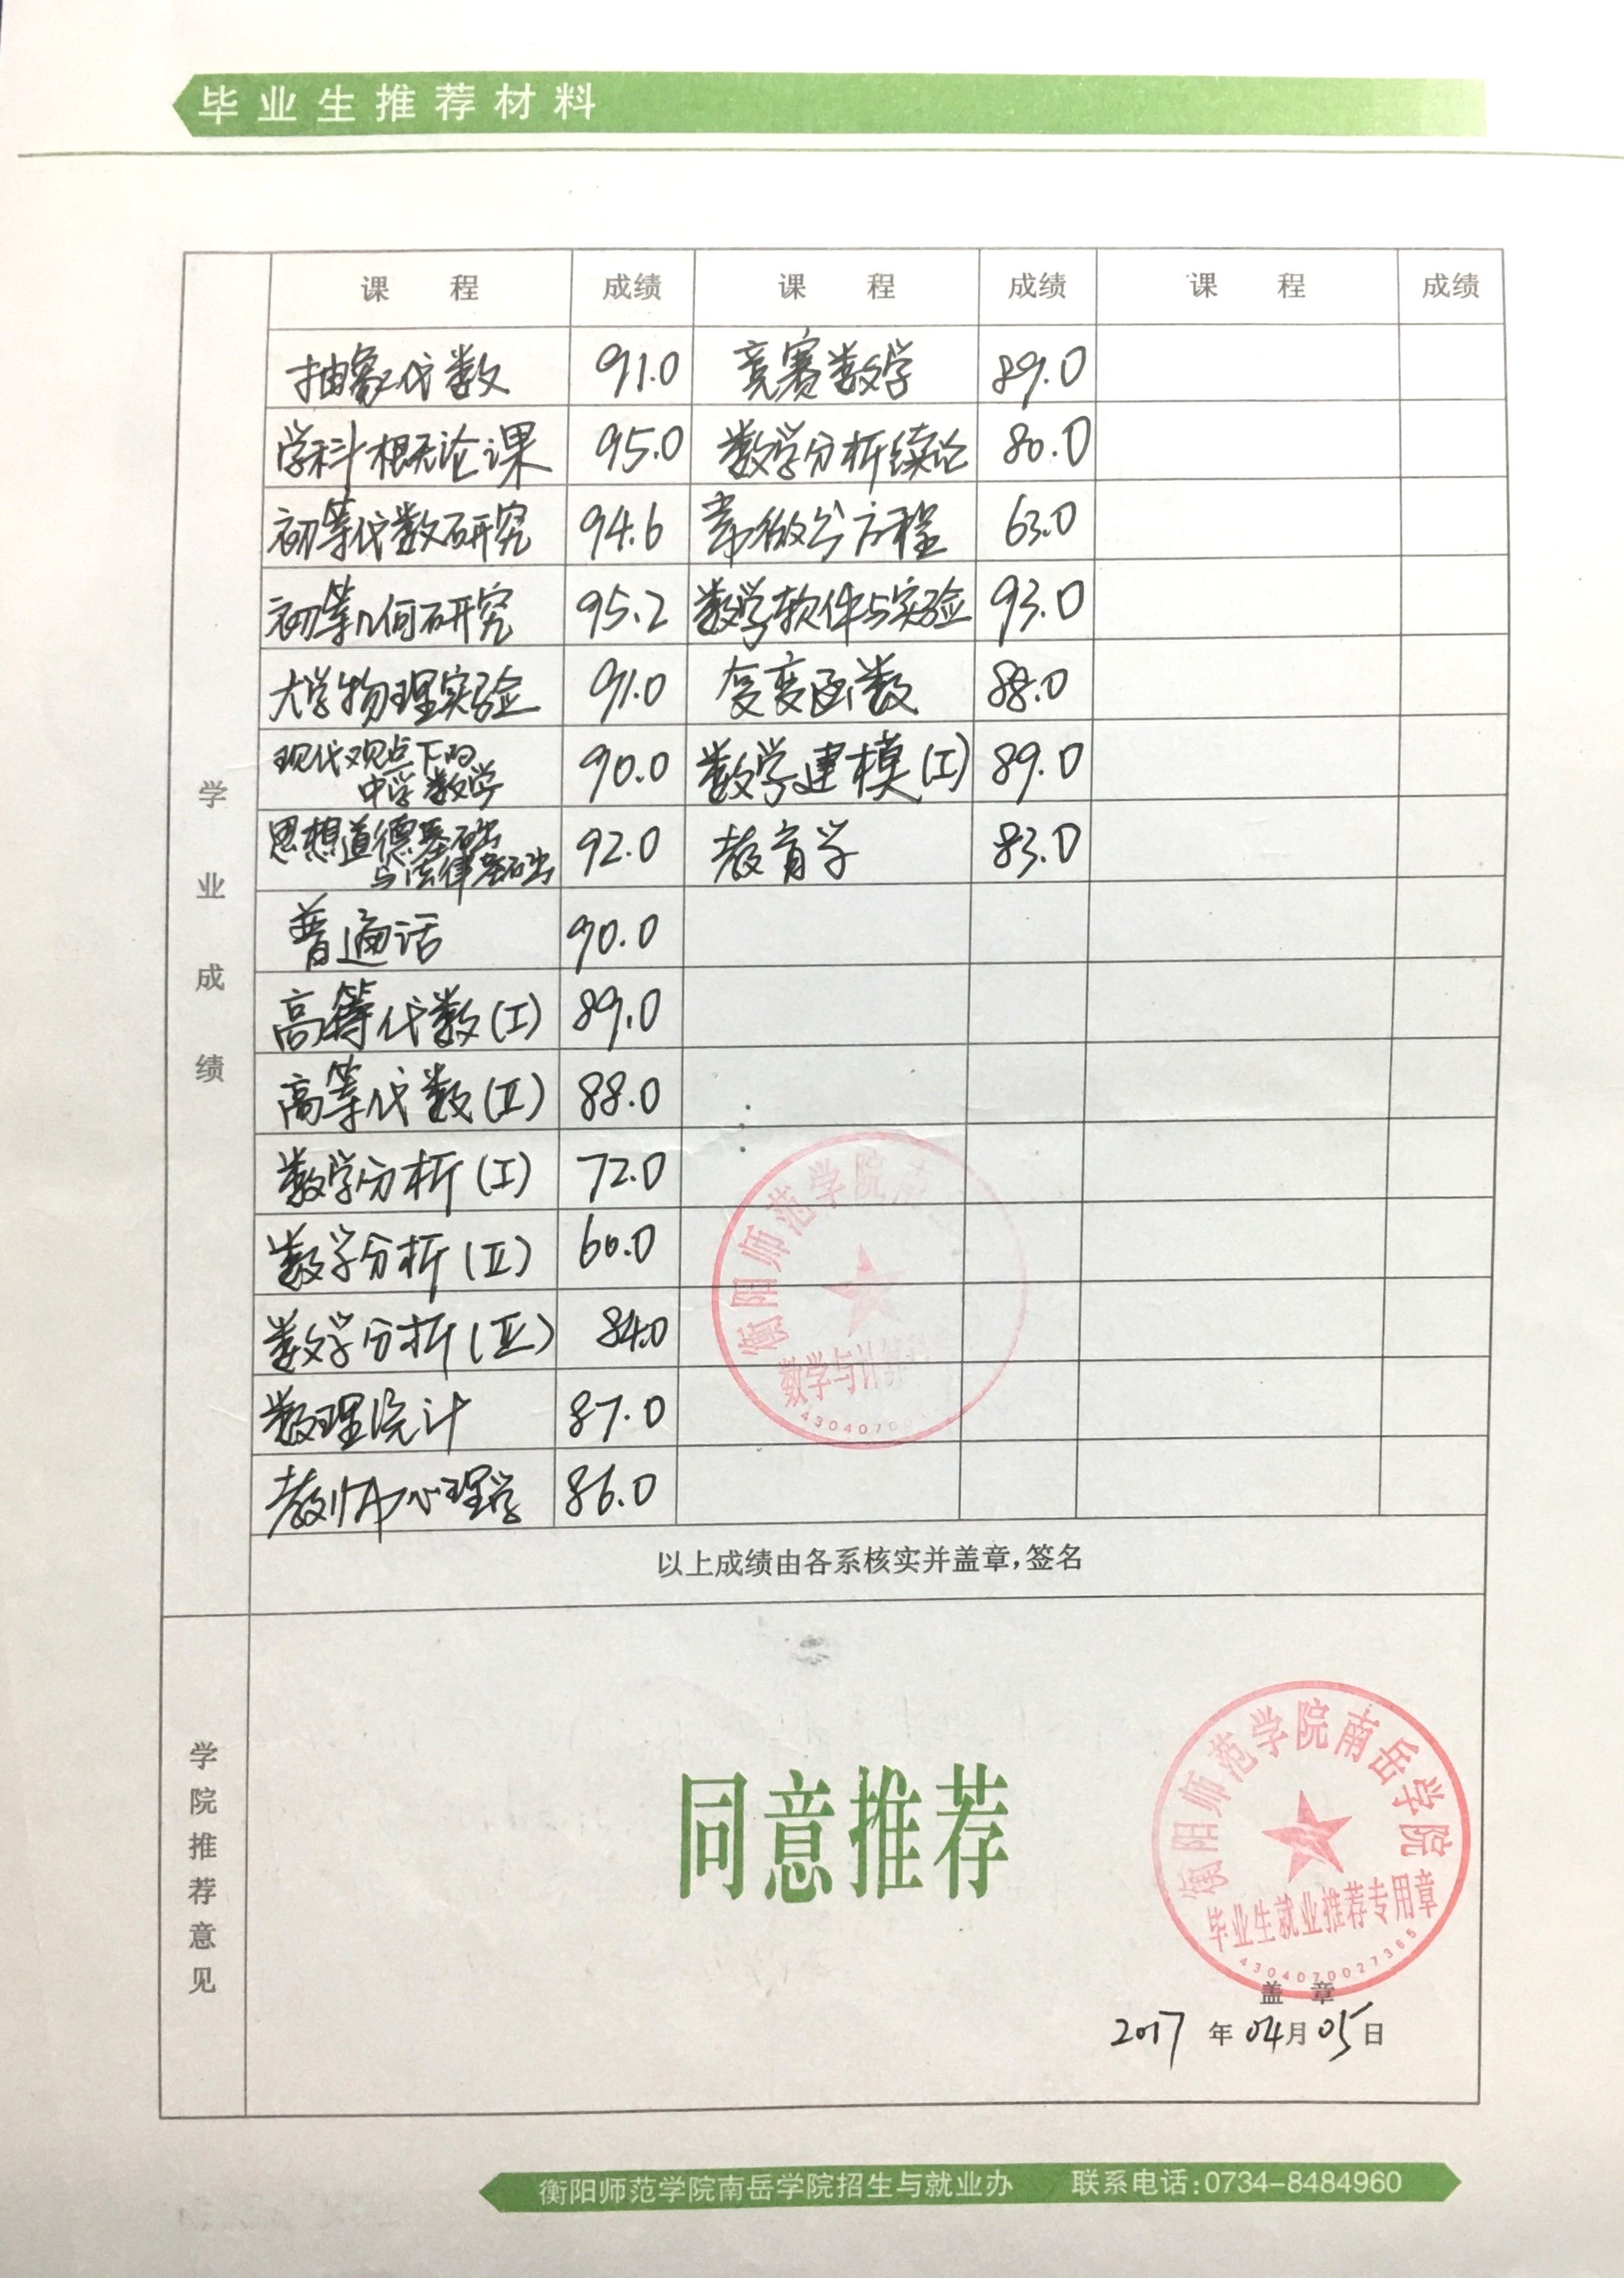 毕业生推荐材料
课 程 成绩 课 程 成绩 课 程 成绩
抽象代数 91.0 竞赛数学 89.0
学科概论课 95.0 数学分析续论 80.0
初等代数研究 94.6 常微分方程 63.0
初等几何研究 95.2 数学软件与实验 93.0
大学物理实验 91.0 复变函数 88.0
现代观点下的
中学数学 90.0 数学建模(I) 89.0
思想道德基础
与法律基础 92.0 教育学 83.0
普通话 90.0
高等代数(I) 89.0
高等代数(II) 88.0
数学分析(I) 72.0
数学分析(II) 60.0
数学分析(III) 84.0
数理统计 87.0
教师心理学 86.0
学业成绩
衡阳师范学院南
数学与计算
43040700
以上成绩由各系核实并盖章,签名
学院推荐意见
同意推荐
衡阳师范学院南岳学院
毕业生就业推荐专用章
4304070027365
盖 章
2017 年 04 月 05 日
衡阳师范学院南岳学院招生与就业办 联系电话:0734-8484960